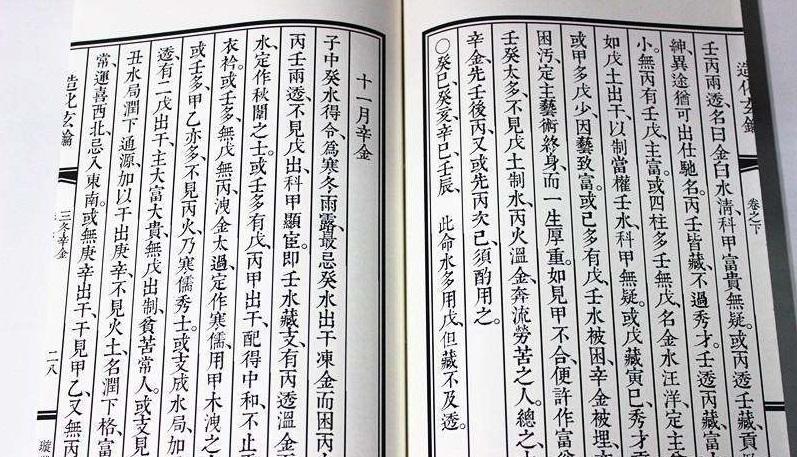 造化玄鑰
卷之下
壬丙兩透、名曰金白水清、科甲富貴無疑。或丙透壬藏、貢
紳、異途猶可出仕馳名。丙壬皆藏、不過秀才。壬透丙藏、富
小。無丙有壬戊、主富。或四柱多壬無戊、名金水汪洋、定主
如戊土出干、以制當權壬水、科甲無疑。或戊藏寅巳、秀才
或甲多戊少、因藝致富。或己多有戊、壬水被困、辛金被埋、
困汚、定主藝術終身、而一生厚重。如見甲不合、便許作富
壬癸太多、不見戊土制水、丙火溫金、奔流勞苦之人。總之、
辛金先壬後丙、又或先丙次己、須酌用之。
○癸巳、癸亥、辛巳、壬辰、 此命水多用戊、但藏不及透。
十一月辛金
子中癸水得令、爲寒冬雨露、最忌癸水出干凍金而困丙
丙壬兩透、不見戊出、科甲顯宦。即壬水藏支、有丙透溫金
水、定作秋闈之士。或壬多有戊、丙甲出干、配得中和、不止
衣衿。或壬多、無戊無丙、洩金太過、定作寒儒、用甲木洩之
或壬多、甲乙亦多、不見丙火、乃寒儒秀士。或支成水局、加
透、有二戊出干、主大富大貴、無戊出制、貧苦常人。或支見
丑水局、潤下通源、加以干出庚辛、不見火土、名潤下格、富
常、運喜西北、忌入東南。或無庚辛出干、干見甲乙、又無丙
造化玄鑰
三冬辛金
二八
璇